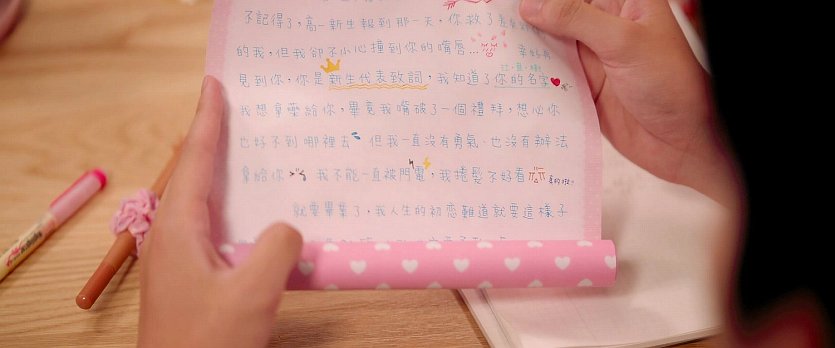 不記得了，高一新生報到那一天，你救了差點
的我，但我卻不小心撞到你的嘴唇... 幸好我
見到你，你是新生代表致詞，我知道了你的名字
我想拿藥給你，畢竟我嘴破了一個禮拜，想必你
也好不到哪裡去 但我一直沒有勇氣，也沒有辦法
拿給你 我不能一直被閃電，我捲髮不好看 真的啦。
就要畢業了，我人生的初戀難道就要這樣子